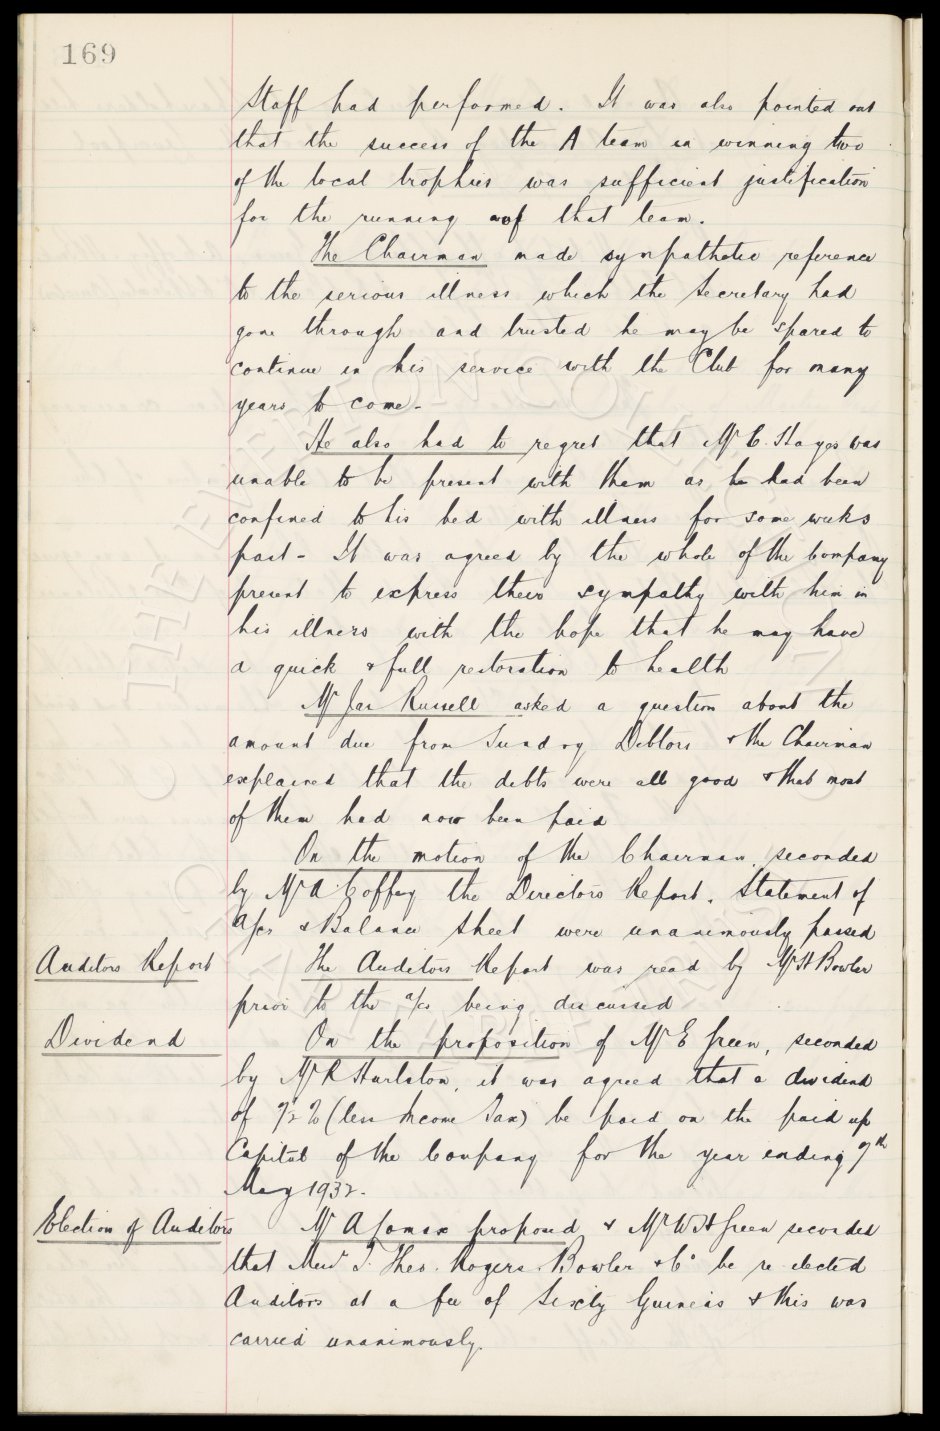 169
Staff had performed. It was also pointed out
that the success of the A team in winning two
of the local trophies was sufficient justification
for the running of that team.
The Chairman made sympathetic reference
to the serious illness which the Secretary had
gone through and trusted he may be spared to
continue in his service with the Club for many
years to come.
He also had to regret that Mr C. Hayes was
unable to be present with them as he had been
confined to his bed with illness for some weeks
past - It was agreed by the whole of the Company
present to express their sympathy with him in
his illness with the hope that he may have
a quick & full restoration to health
Mr Jas Russell asked a question about the
amount due from Sundry Debtors & the Chairman
explained that the debts were all good & that most
of them had now been paid
On the motion of the Chairman, seconded
by Mr A Coffey the Directors Report, Statement of
a/cs & Balance Sheet were unanimously passed
Auditors Report
The Auditors Report was read by Mr H Bowler
prior to the a/cs being discussed
Dividend
On the proposition of Mr E Green, seconded
by Mr R Hurlston, it was agreed that a dividend
of 7½ % (less Income Tax) be paid on the paid up
Capital of the Company for the year ending 7th
May 1932.
Election of Auditors
Mr A Lomax proposed & Mr W H Green seconded
that Messrs T. Theo. Rogers Bowler & Co be re-elected
Auditors at a fee of Sixty Guineas & this was
carried unanimously.